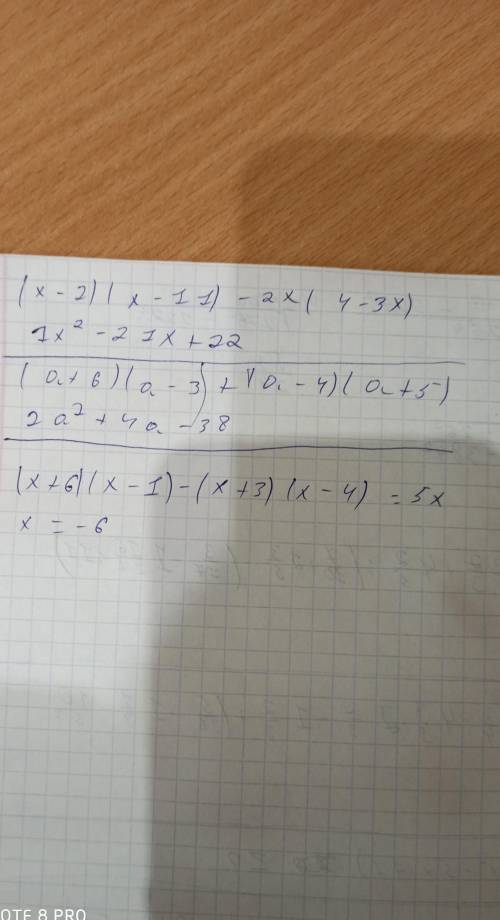 (x - 2)(x - 11) - 2x(4 - 3x)
7x² - 21x + 22
(a + 6)(a - 3) + (a - 4)(a + 5)
2a² + 4a - 38
(x + 6)(x - 1) - (x + 3)(x - 4) = 5x
x = - 6
OTE 8 PRO